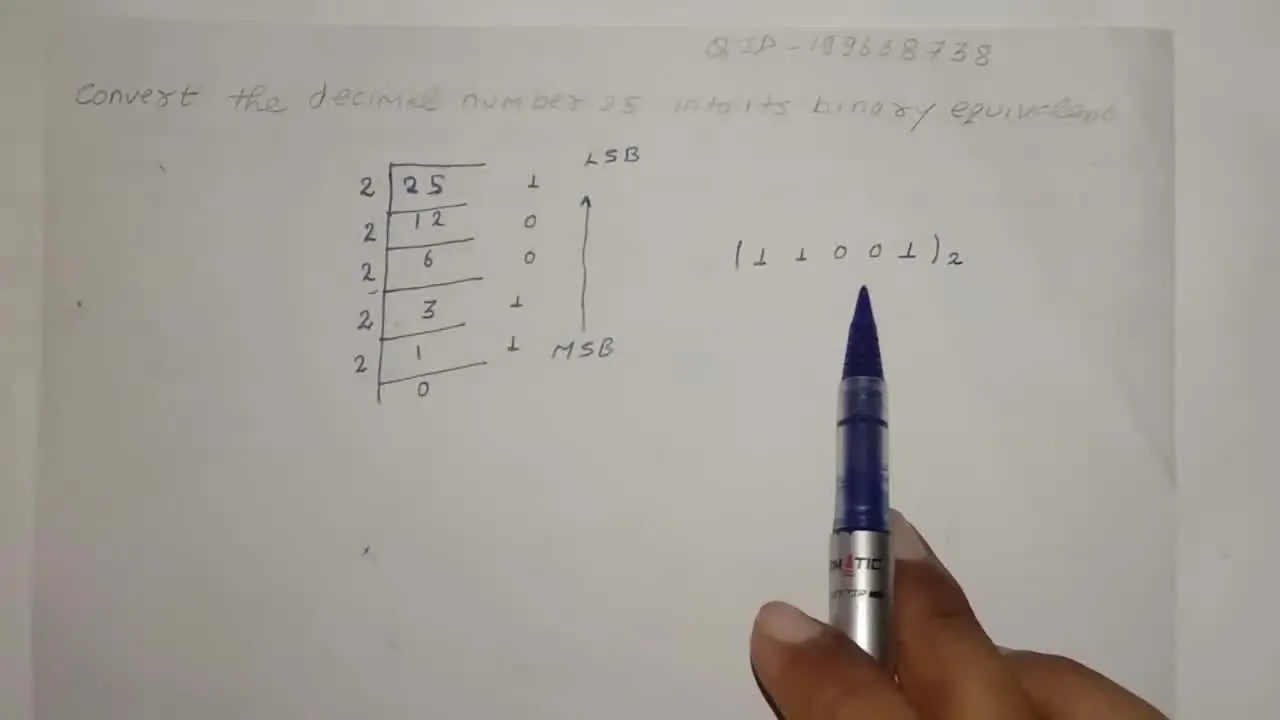 QID - 199638738
Convert the decimal number 25 into its binary equivalent
LSB
2 25 1
2 12 0
2 6 0
2 3 1
2 1 1 MSB
0
(1 1 0 0 1)2